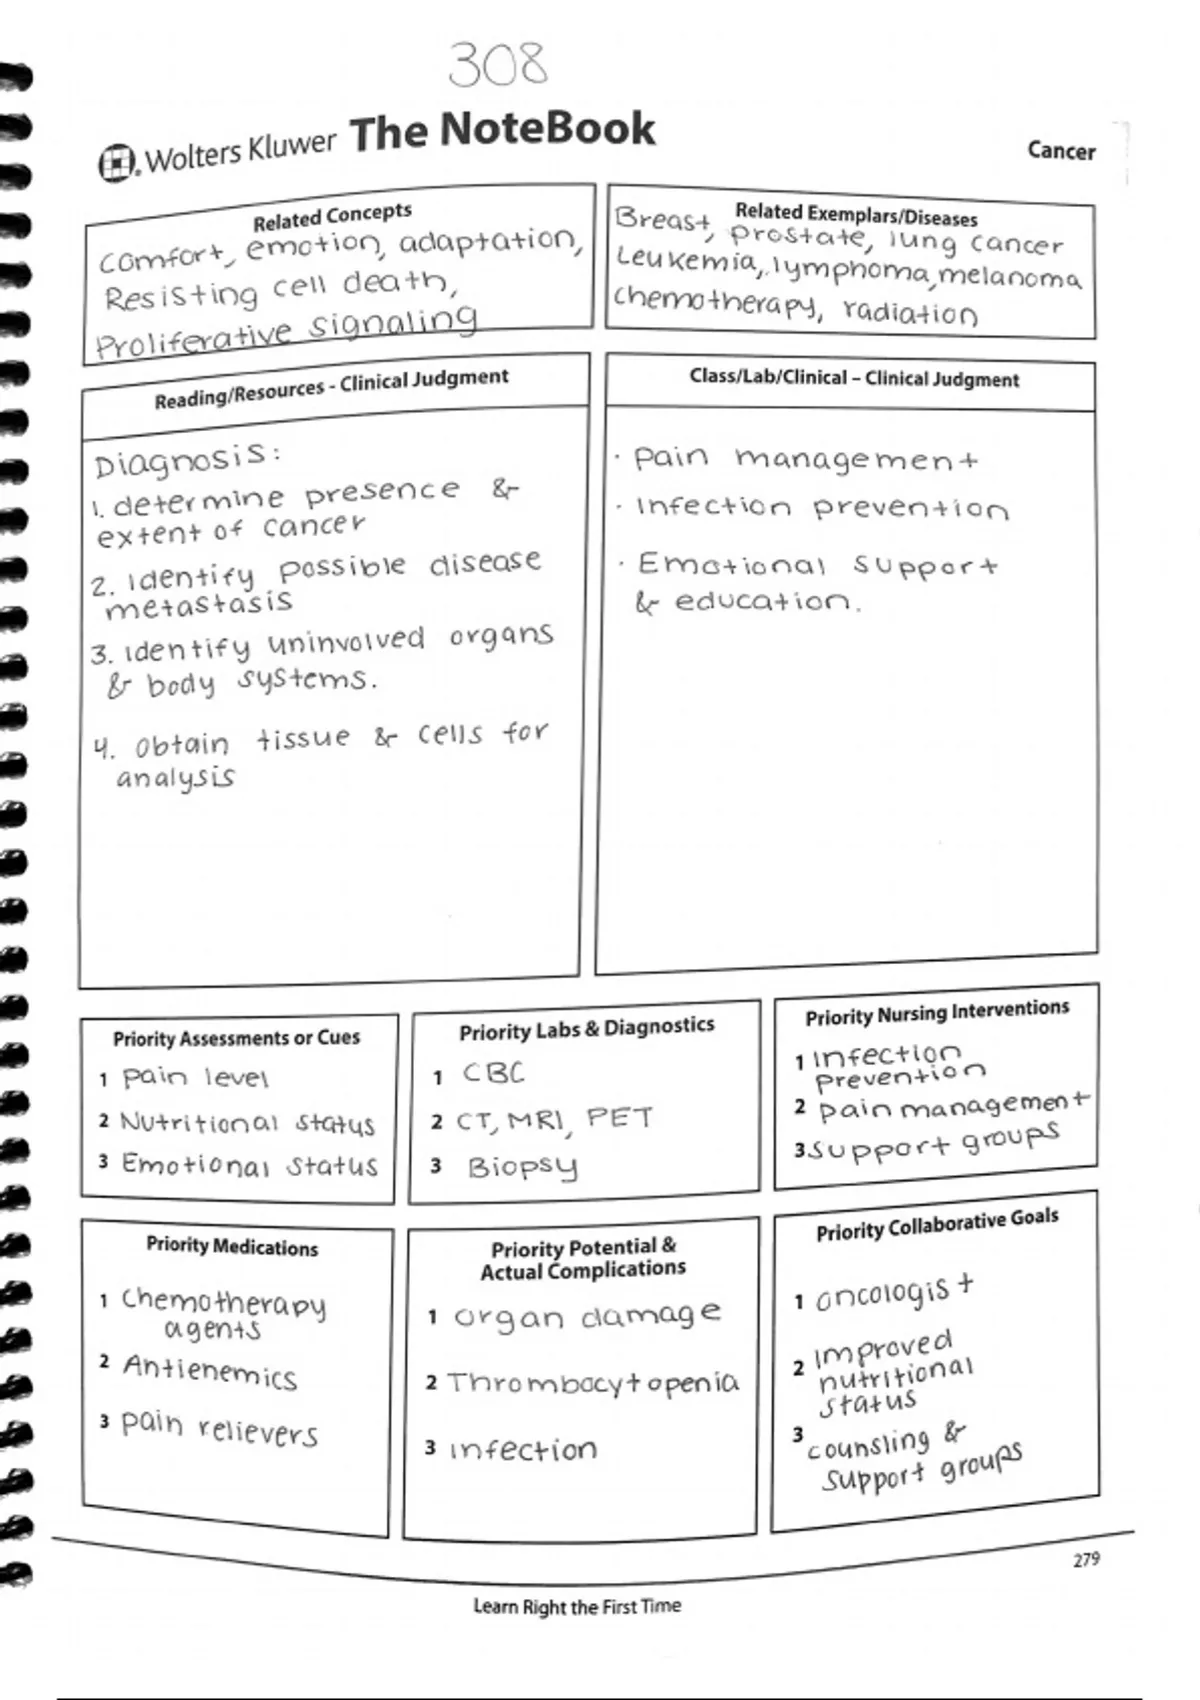 308
Wolters Kluwer The NoteBook
Cancer
Related Concepts
Comfort, emotion, adaptation,
Resisting cell death,
Proliferative signaling
Related Exemplars/Diseases
Breast, prostate, lung cancer
Leukemia, lymphoma, melanoma
chemotherapy, radiation
Reading/Resources - Clinical Judgment
Diagnosis:
1. determine presence &
extent of cancer
2. Identify possible disease
metastasis
3. identify uninvolved organs
& body systems.
4. obtain tissue & cells for
analysis
Class/Lab/Clinical – Clinical Judgment
· Pain management
· Infection prevention
· Emotional support
& education.
Priority Assessments or Cues
1 Pain level
2 Nutritional status
3 Emotional status
Priority Labs & Diagnostics
1 CBC
2 CT, MRI, PET
3 Biopsy
Priority Nursing Interventions
1 Infection
prevention
2 pain management
3 support groups
Priority Medications
1 Chemotherapy
agents
2 Antienemics
3 pain relievers
Priority Potential &
Actual Complications
1 organ damage
2 Thrombocytopenia
3 infection
Priority Collaborative Goals
1 oncologist
2 improved
nutritional
status
3 counsling &
support groups
279
Learn Right the First Time